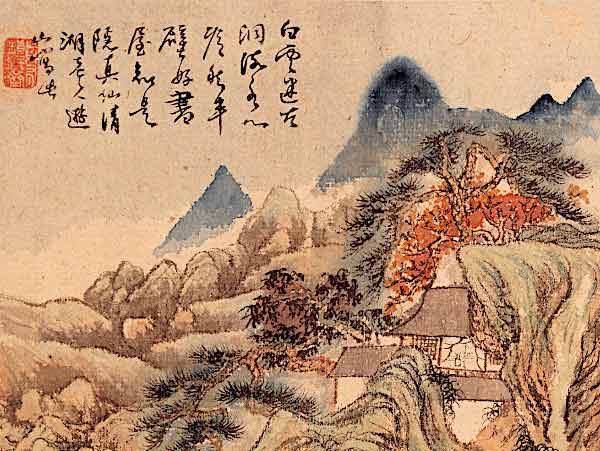 白雲迷古
洞流水心
澹然半
壁好書
屋知是
隱真仙清
湘老人遊
山寫此